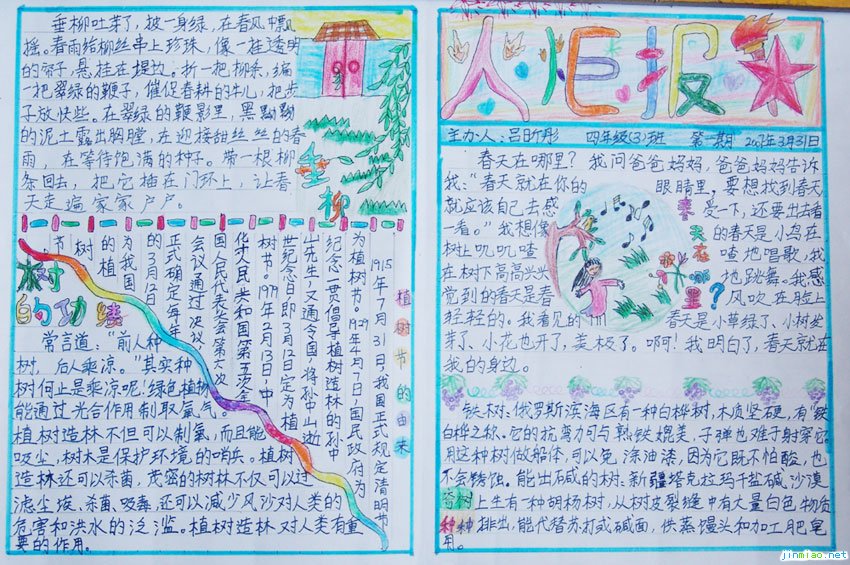 垂柳吐芽了，披一身绿，在春风中飘
摇。春雨给柳丝串上珍珠，像一挂透明
的帘子，悬挂在堤边。折一把柳条，编
一把翠绿的鞭子，催促春耕的牛儿，把步
子放快些。在翠绿的鞭影里，黑黝黝
的泥土露出胸膛，在迎接甜丝丝的春
雨，在等待饱满的种子。带一根柳
条回去，把它插在门环上，让春
天走遍家家户户。
垂柳
植树节的由来
1915年7月31日，我国正式规定清明节
为植树节。1929年4月7日，国民政府为
纪念一贯倡导植树造林的孙中
山先生，又通令全国，将孙中山逝
世纪念日即3月12日定为植
树节。1979年2月13日，中
华人民共和国第五次全
国人民代表大会第六次
会议通过决议，
正式确定每年
的3月12日
为我国
的植
树
节
树的功绩
常言道："前人种
树，后人乘凉。"其实种
树何止是乘凉呢！绿色植物
能通过光合作用制取氧气。
植树造林不但可以制氧，而且能
吸尘，树木是保护环境的哨兵。植树
造林还可以杀菌。茂密的树林不仅可以过
滤尘埃、杀菌、吸毒，还可以减少风沙对人类的
危害和洪水的泛滥。植树造林对人类有重
要的作用。
火炬报
主办人：吕昕彤 四年级(3)班 第一期 2017年3月31日
春天在哪里？我问爸爸妈妈，爸爸妈妈告诉
我："春天就在你的眼睛里。要想找到春天
就应该自己去感受一下，还要出去看
一看。"我想像的春天是小鸟在
树上叽叽喳喳地唱歌，我
在树下高高兴兴地跳舞。我感
觉到的春天是春风吹在脸上
轻轻的。我看见的春天是小草绿了、小树发
芽了、小花也开了，美极了。啊！我明白了，春天就在
我的身边。
春天在哪里？
铁树：俄罗斯滨海区有一种白桦树，木质坚硬，有"铁
白桦之称。它的抗弯力可与熟铁媲美，子弹也难于射穿它。
用这种树做船体，可以免涂油漆，因为它既不怕酸，也
不会锈蚀。能出碱的树：新疆塔克拉玛干盐碱沙漠
上生有一种胡杨树，从树皮裂缝中有大量白色物质
排出，能代替苏打或碱面，供蒸馒头和加工肥皂
用。
奇树
种种
jinmiao.net